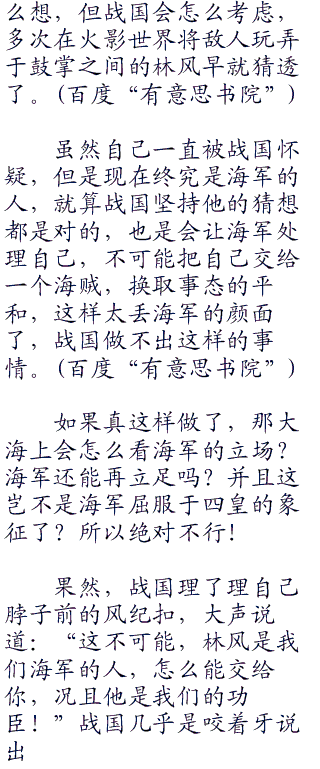 么想，但战国会怎么考虑，
多次在火影世界将敌人玩弄
于鼓掌之间的林风早就猜透
了。(百度“有意思书院”)
虽然自己一直被战国怀
疑，但是现在终究是海军的
人，就算战国坚持他的猜想
都是对的，也是会让海军处
理自己，不可能把自己交给
一个海贼，换取事态的平
和，这样太丢海军的颜面
了，战国做不出这样的事
情。(百度“有意思书院”)
如果真这样做了，那大
海上会怎么看海军的立场？
海军还能再立足吗？并且这
岂不是海军屈服于四皇的象
征了？所以绝对不行！
果然，战国理了理自己
脖子前的风纪扣，大声说
道：“这不可能，林风是我
们海军的人，怎么能交给
你，况且他是我们的功
臣！”战国几乎是咬着牙说
出